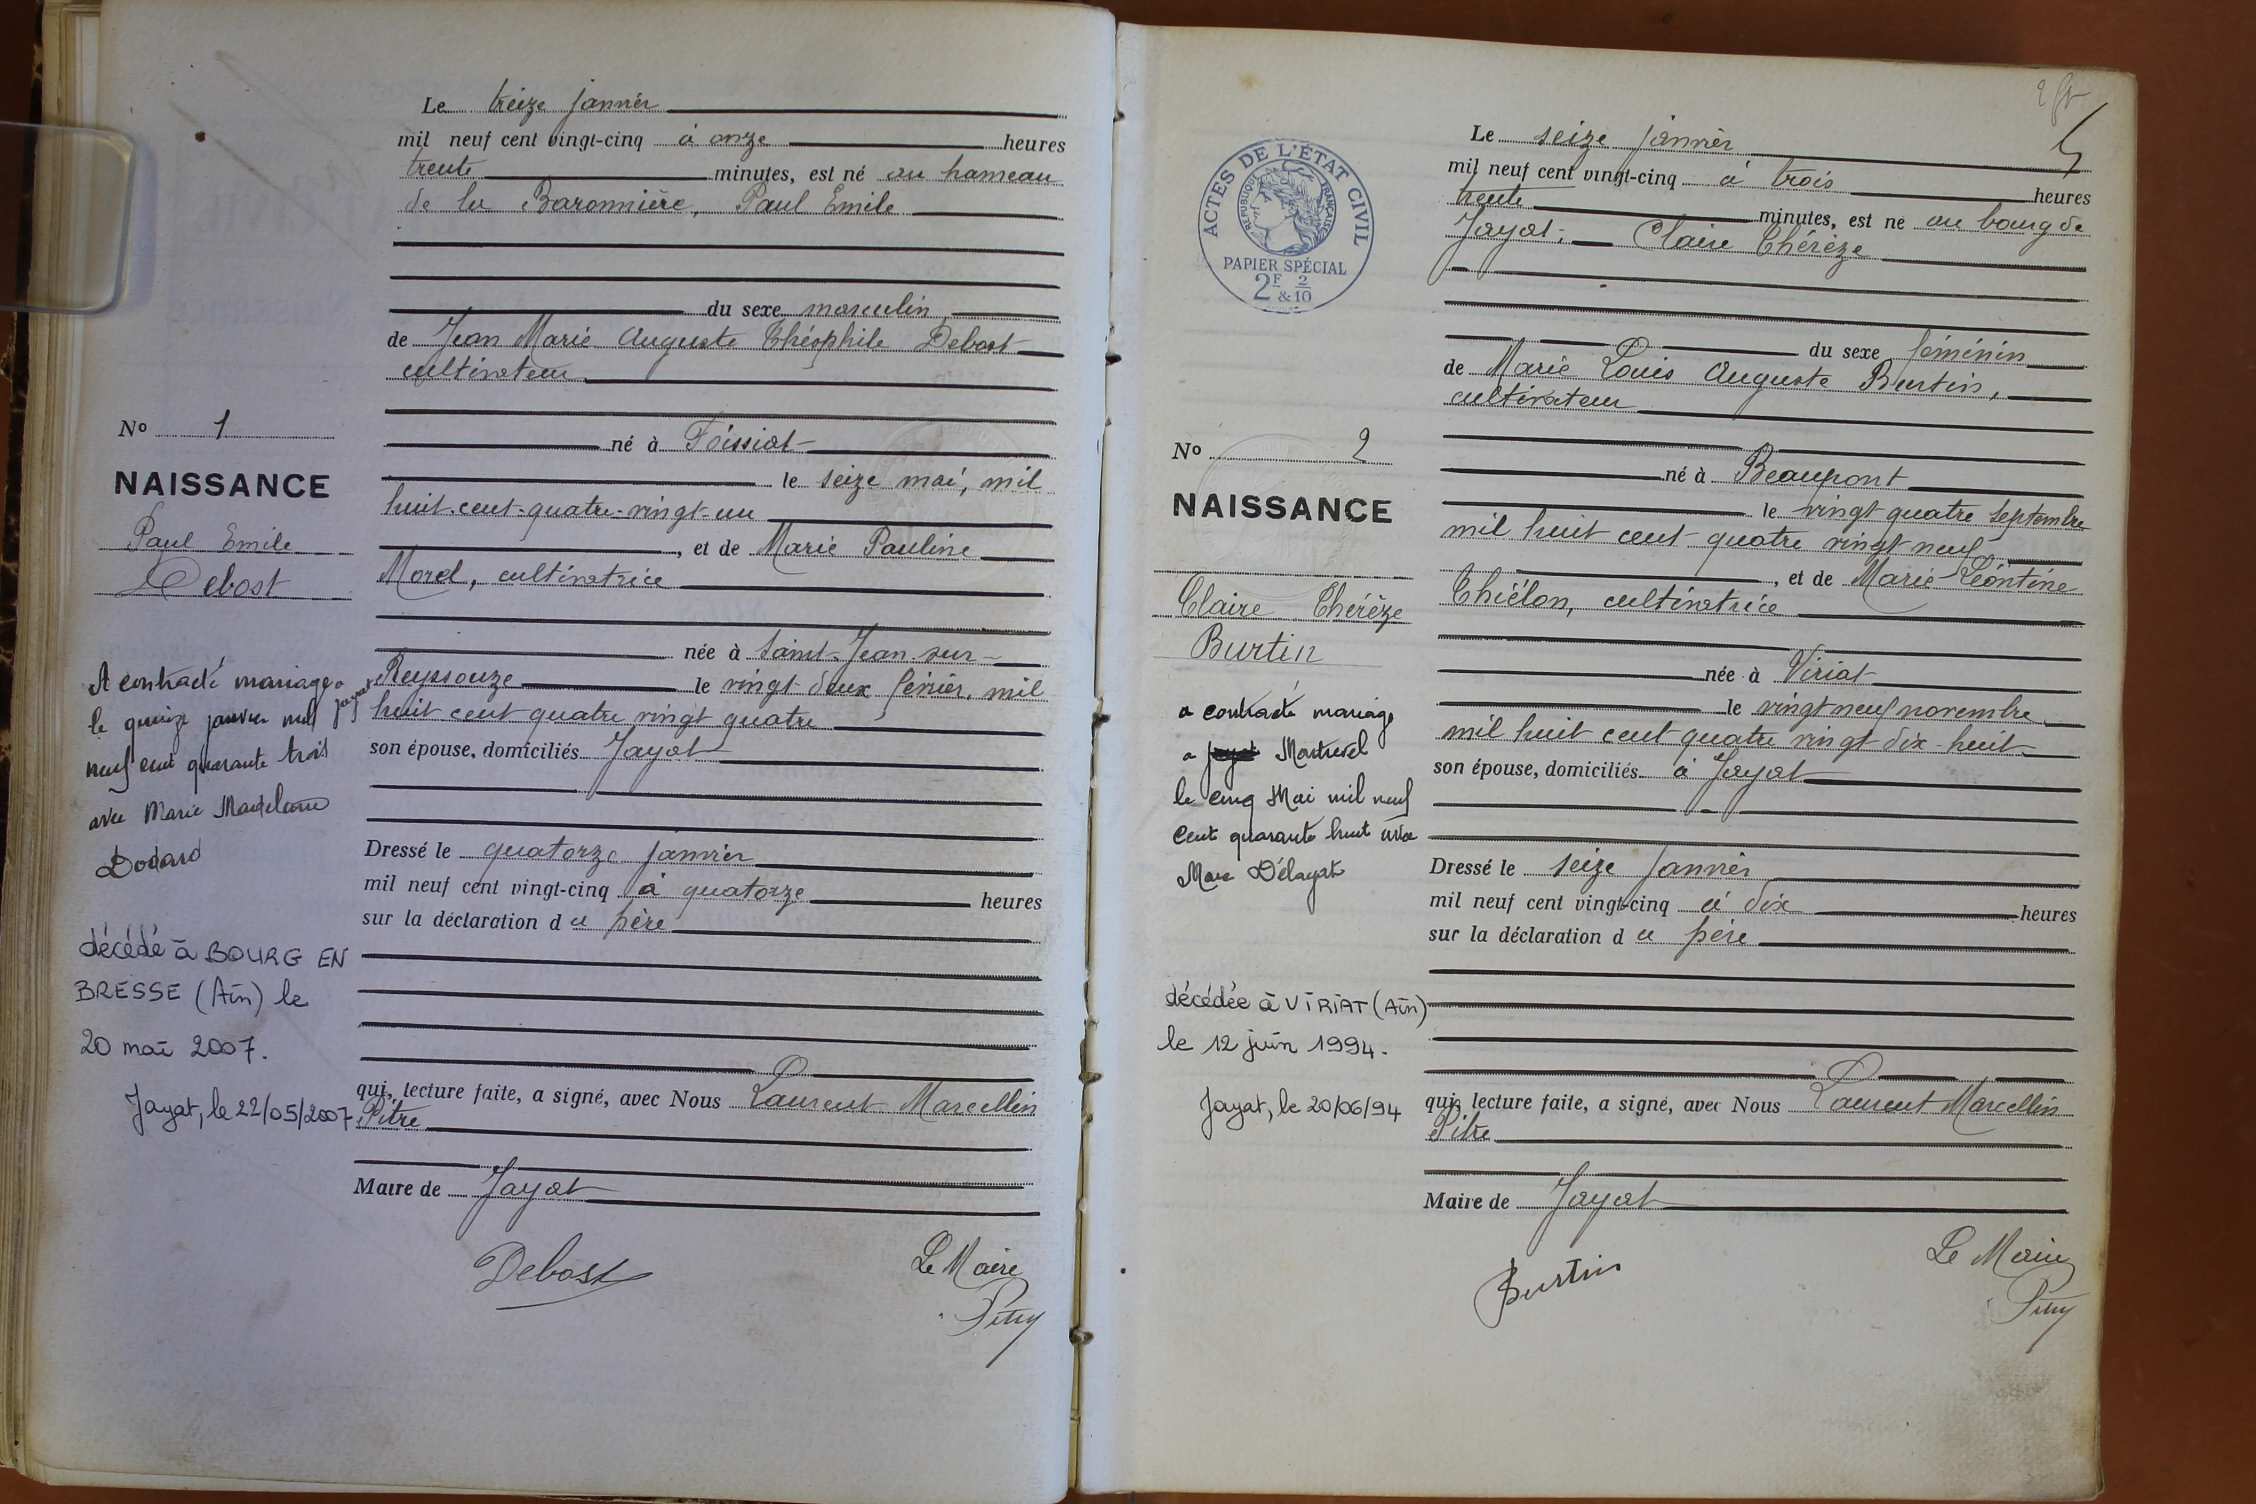 Le treize janvier
mil neuf cent vingt-cinq à onze heures
trente minutes, est né au hameau
de la Baronnière, Paul Emile
du sexe masculin
de Jean Marie Auguste Théophile Debost
cultivateur
né à Foissiat
le seize mai, mil
huit-cent-quatre-vingt-un
, et de Marie Pauline
Morel, cultivatrice
née à Saint-Jean-sur-
Reyssouze le vingt-deux février, mil
huit cent quatre vingt quatre
son épouse, domiciliés Jayat
Dressé le quatorze janvier
mil neuf cent vingt-cinq à quatorze heures
sur la déclaration du père
qui, lecture faite, a signé, avec Nous Laurent Marcellin
Pitre
Maire de Jayat
Debost
Le Maire
No 1
NAISSANCE
Paul Emile
Debost
A contracté mariage a Jayat
le quinze janvier mil
neuf cent quarante trois
avec Marie Madeleine
Dodard
décédé à BOURG EN
BRESSE (Ain) le
20 mai 2007.
Jayat, le 22/05/2007
ACTES DE L'ÉTAT CIVIL
RÉPUBLIQUE FRANÇAISE
PAPIER SPÉCIAL
2F & 2/10
Le seize janvier
mil neuf cent vingt-cinq à trois heures
trente minutes, est né au bourg de
Jayat, Claire Thérèze
du sexe féminin
de Marie Louis Auguste Burtin,
cultivateur
né à Beaupont
le vingt quatre septembre
mil huit cent quatre vingt neuf
, et de Marie Léontine
Thiélon, cultivatrice
née à Viriat
le vingt neuf novembre
mil huit cent quatre vingt dix-huit
son épouse, domiciliés à Jayat
Dressé le seize janvier
mil neuf cent vingt-cinq à dix heures
sur la déclaration du père
qui, lecture faite, a signé, avec Nous Laurent Marcellin
Pitre
Maire de Jayat
Burtin
Le Maire
No 2
NAISSANCE
Claire Thérèze
Burtin
a contracté mariage
a Montrevel
le cinq Mai mil neuf
cent quarante huit avec
Marc Délayat
décédée à VIRIAT (Ain)
le 12 juin 1994.
Jayat, le 20/06/94